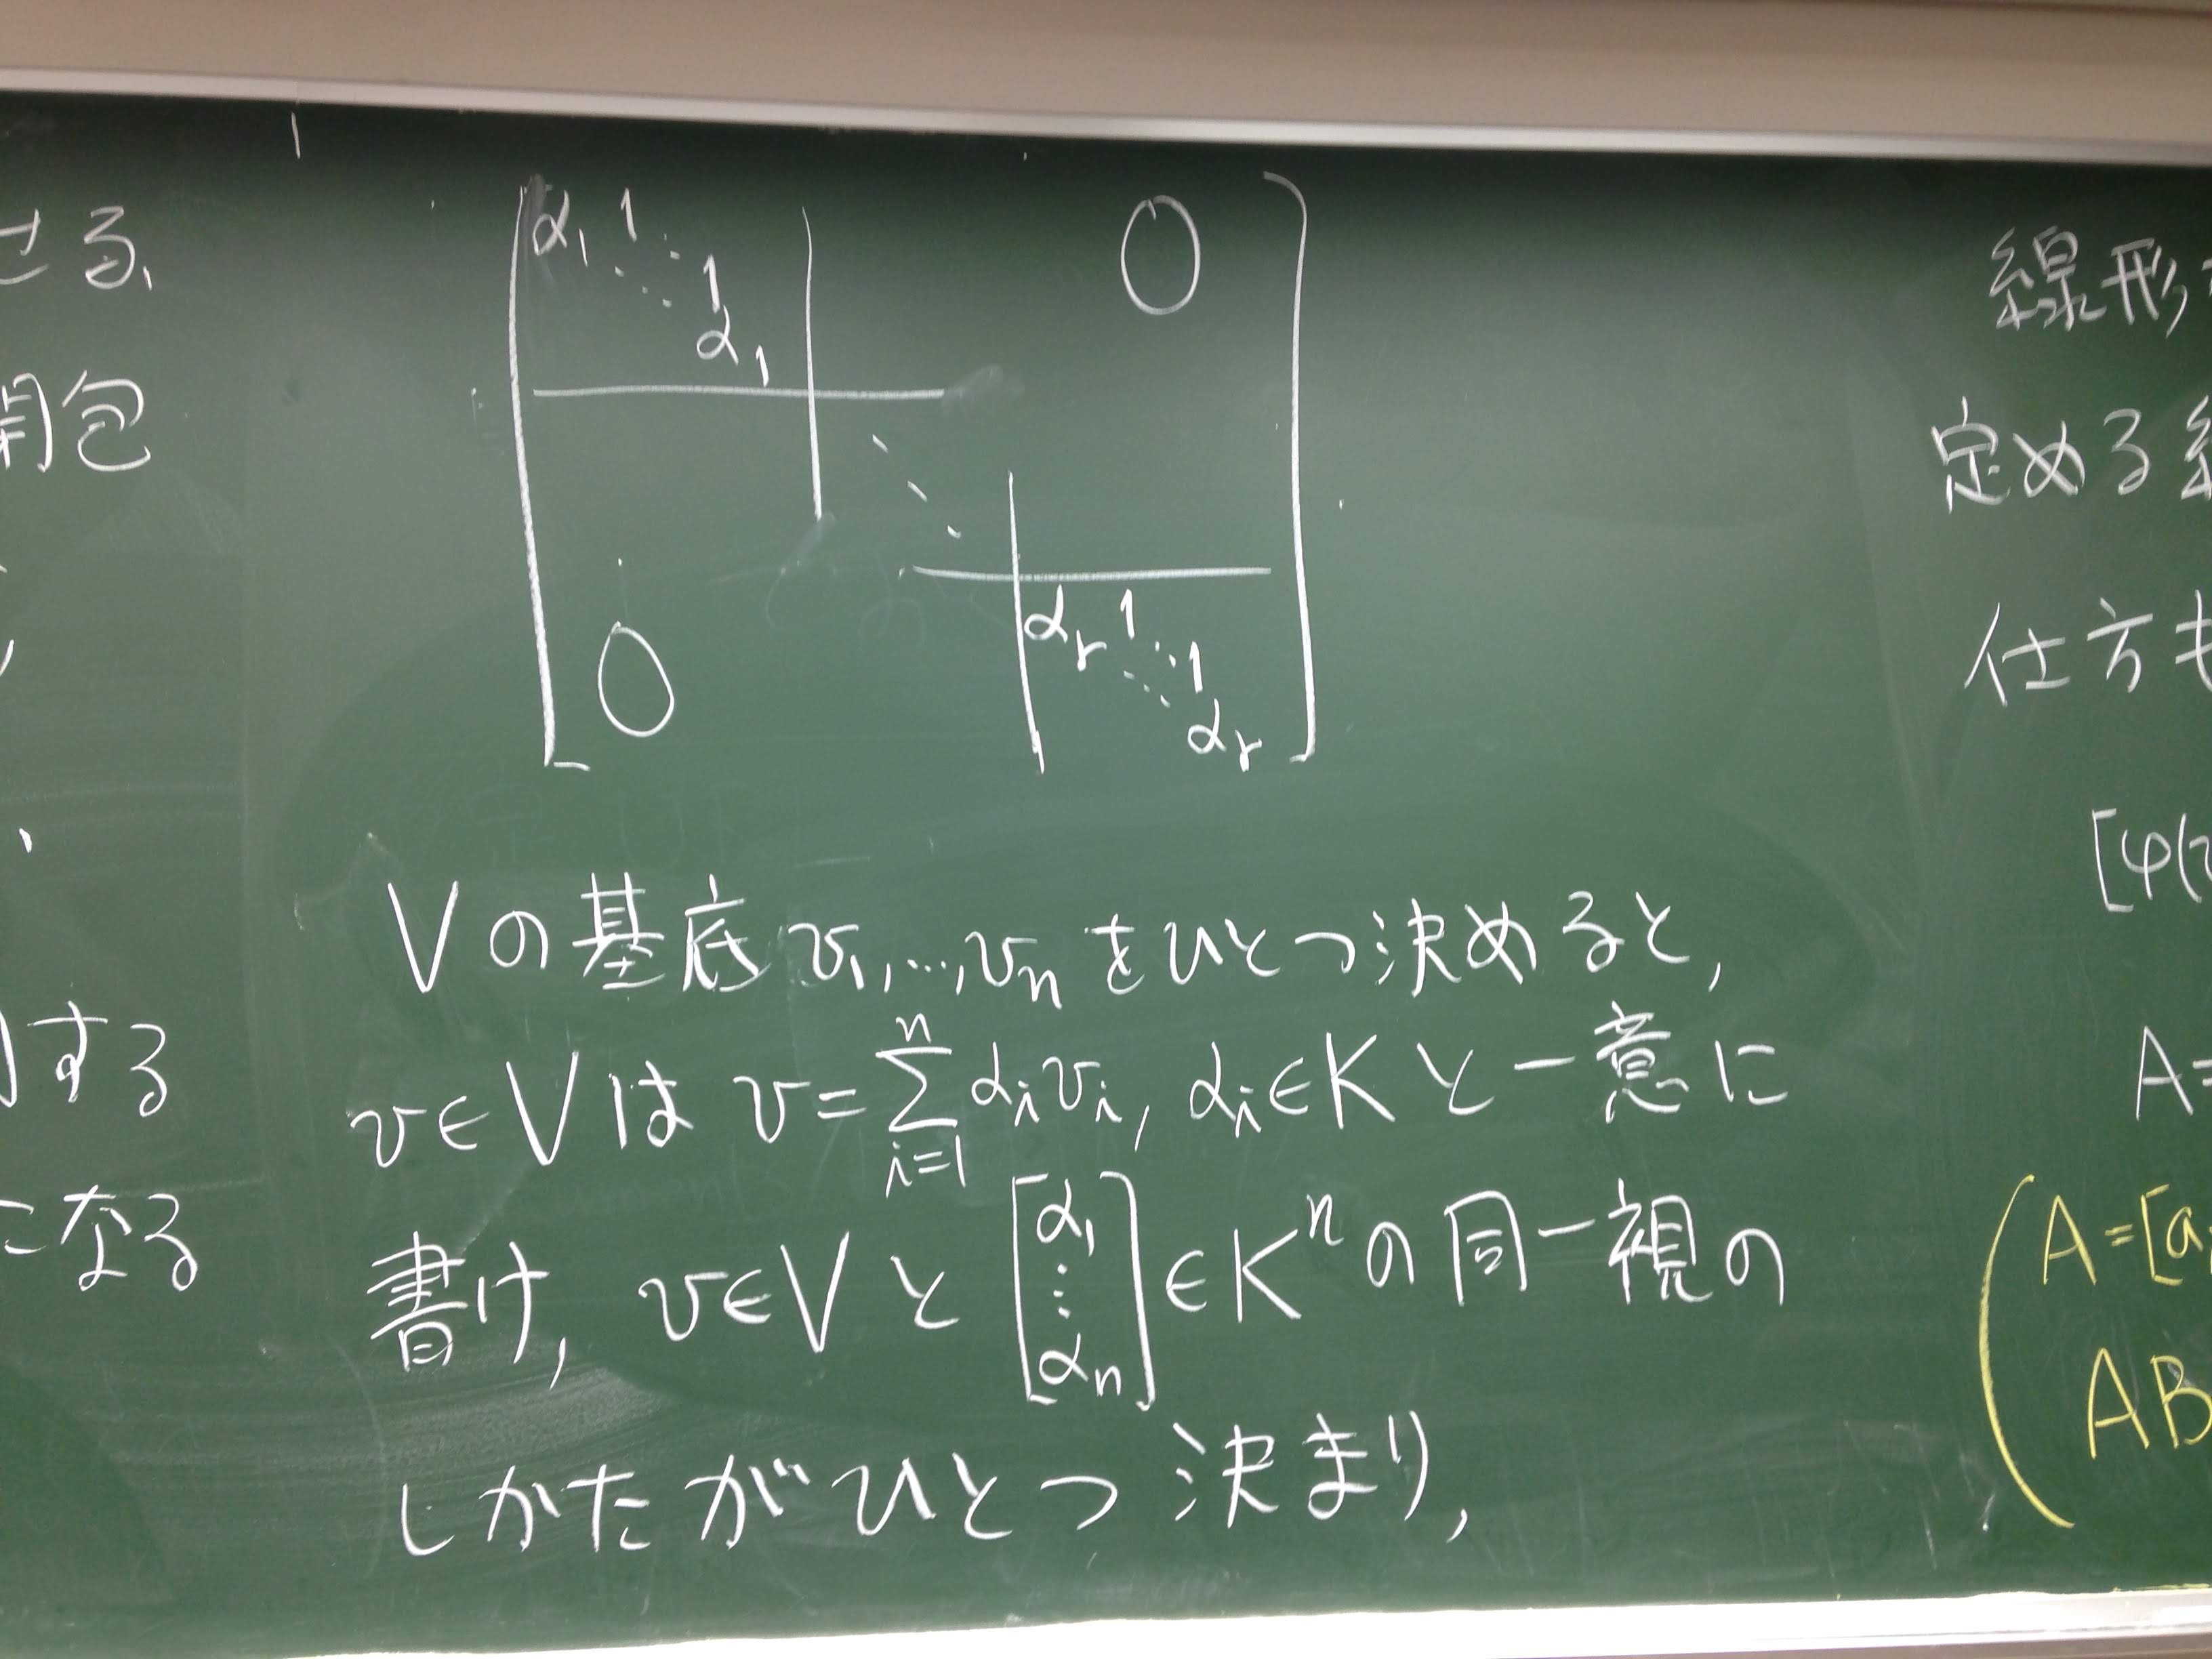 せる,
閉包
する
になる
α₁ 1 0
⋱ ⋱ 1
α₁
⋱
αᵣ 1
⋱ ⋱ 1
0 αᵣ
Vの基底 v₁,…,vₙ をひとつ決めると,
v∈Vは v=∑ⁿᵢ₌₁ αᵢvᵢ, αᵢ∈K と一意に
書け, v∈V と [α₁ ⋮ αₙ] ∈Kⁿ の同一視の
しかたがひとつ決まり,
線形
定める
仕方も
[φ(v
A=
(A=[a
AB